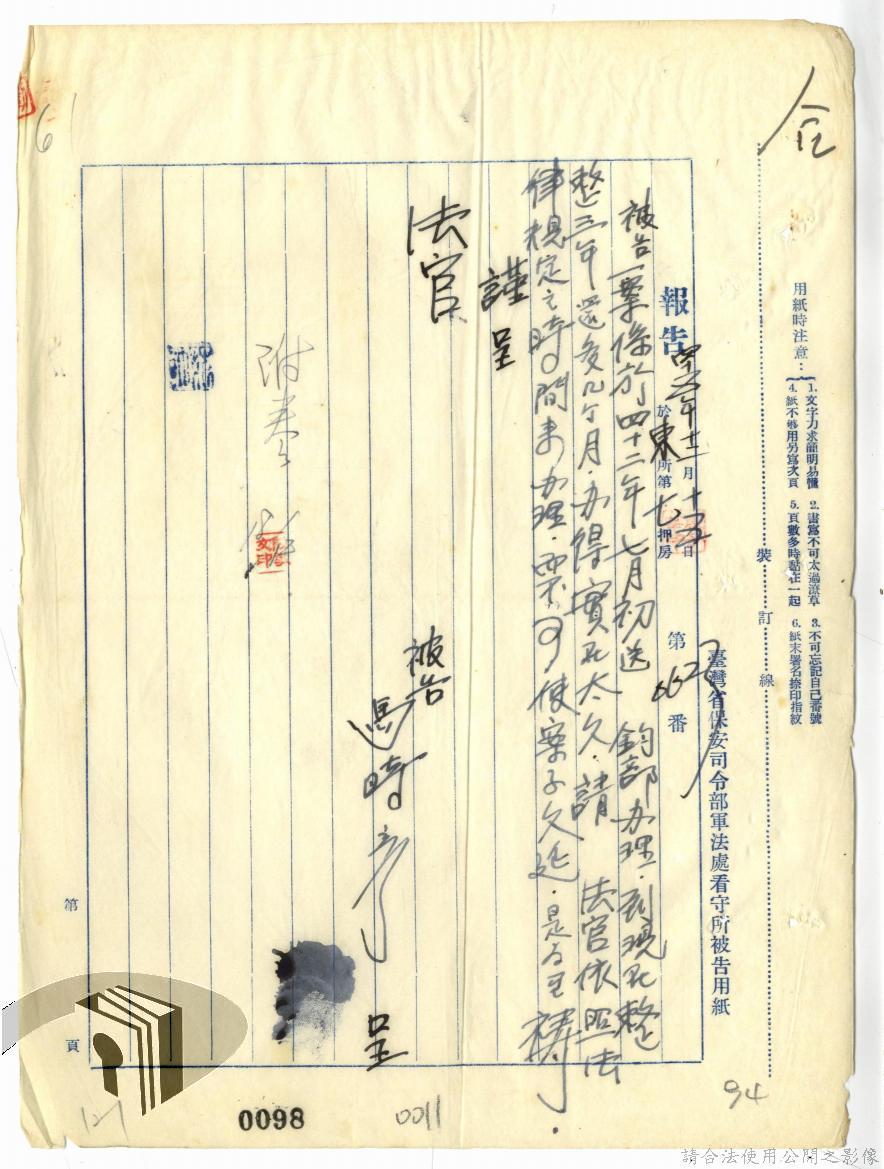 用紙時注意：
1. 文字力求簡明易懂 2. 書寫不可太過潦草 3. 不可忘記自己番號
4. 紙不够用另寫次頁 5. 頁數多時黏在一起 6. 紙末署名捺印指紋
裝訂線
臺灣省保安司令部軍法處看守所被告用紙
報告
年十二月十五日
於東所第七押房
第662番
被告一案係於四十二年七月初送 鈞部办理．到現在整
整三年還多几个月．办得實在太久．請 法官依照法
律規定之時間來办理．不可使案子久延．是為至禱．
謹呈
法官
被告
馮時彥
呈
附卷
第 頁
6
94
121
0098
0011
請合法使用公開之影像